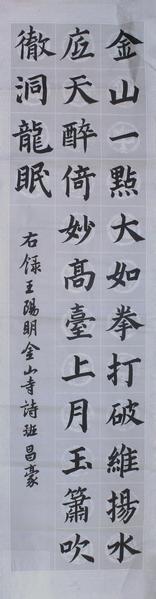 金山一點大如拳打破維揚水
底天醉倚妙高臺上月玉簫吹
徹洞龍眠
右錄王陽明金山寺詩班昌豪